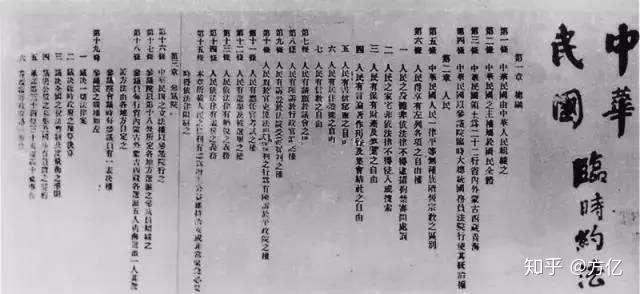 中華民國臨時約法
第一章 總綱
第一條 中華民國由中華人民組織之
第二條 中華民國之主權屬於國民全體
第三條 中華民國領土為二十二行省內外蒙古西藏青海
第四條 中華民國以參議院臨時大總統國務員法院行使其統治權
第二章 人民
第五條 中華民國人民一律平等無種族階級宗教之區別
第六條 人民得享有左列各項之自由權
一 人民之身體非依法律不得逮捕拘禁審問處罰
二 人民之家宅非依法律不得侵入或搜索
三 人民有保有財產及營業之自由
四 人民有言論著作刊行及集會結社之自由
五 人民有書信秘密之自由
六 人民有居住遷徙之自由
七 人民有信教之自由
第七條 人民有請願於議會之權
第八條 人民有陳訴於行政官署之權
第九條 人民有訴訟於法院受其審判之權
第十條
第十一條
第十二條 人民有選舉及被選舉之權
第十三條 人民依法律有納稅之義務
第十四條 人民依法律有服兵之義務
第十五條
時得依法律限制之
第三章 參議院
第十六條 中華民國之立法權以參議院行之
第十七條 參議院以第十八條所定各地方選派之參議員組織之
第十八條 參議員每行省內蒙古外蒙古西藏各選派五人青海選派一人其選
派方法由各地方自定之
參議院會議時每參議員有一表決權
第十九條 參議院之職權如左
一 議決一切法律案
二
三
四
五
六
知乎 @方亿